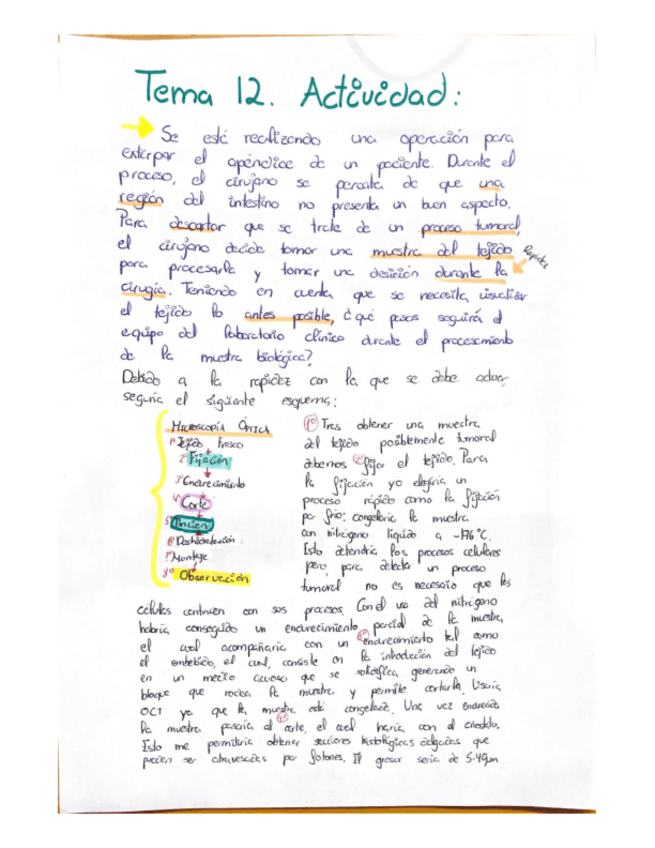 Tema 12. Actividad:
Se está realizando una operación para
extirpar el apéndice de un paciente. Durante el
proceso, el cirujano se percata de que una
región del intestino no presenta un buen aspecto.
Para descartar que se trate de un proceso tumoral,
el cirujano decide tomar una muestra del tejido
Rapidez
para procesarla y tomar una desición durante la
cirugía. Teniendo en cuenta que se necesita visualizar
el tejido lo antes posible, ¿qué pasos seguirá el
equipo del laboratorio clínico durante el procesamiento
de la muestra biológica?
Debido a la rapidez con la que se debe actuar,
seguiría el siguiente esquema:
MICROSCOPÍA ÓPTICA
1º Tejido fresco
2º Fijación
3º Endurecimiento
4º Corte
5º Tinción
6º Deshidratación
7º Montaje
8º Observación
1º Tras obtener una muestra
del tejido posiblemente tumoral
debemos fijar el tejido. Para
la fijación yo elegiría un
proceso rápido como la fijación
por frío: congelaría la muestra
con nitrógeno líquido a -196°C.
Esto detendría los procesos celulares
pero, para detectar un proceso
tumoral no es necesario que las
células continuen con sus procesos. Con el uso del nitrógeno
habría conseguido un endurecimiento parcial de la muestra,
el cual acompañaría con un endurecimiento tal como
el embebido, el cual, consiste en la introducción del tejido
en un medio acuoso que se solidifica generando un
bloque que rodea la muestra y permite cortarla. Usaría
OCT ya que la muestra está congelada. Una vez endurecida
la muestra pasaría al corte, el cual haría con el criostato.
Esto me permitiría obtener secciones histológicas delgadas que
puedan ser atravesadas por fotones. El grosor sería de 5-40µm